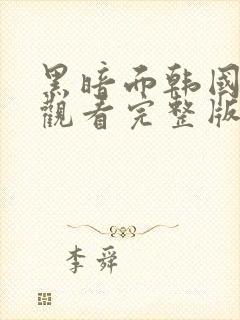 黑暗而韩國
觀看完整版
李舜